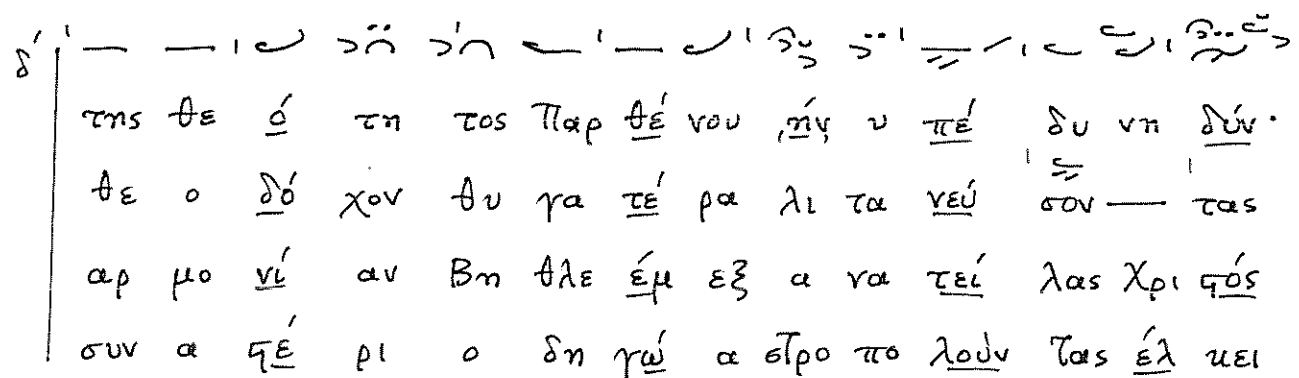 δ΄
της θε ό τη τος Παρ θέ νου ήν υ πέ δυ νη δύν·
θε ο δό χον θυ γα τέ ρα λι τα νεύ σον — τας
αρ μο νί αν Βη θλε έμ εξ α να τεί λας Χρι ϛός
συν α ϛέ ρι ο δη γώ α στρο πο λούν τας έλ κει